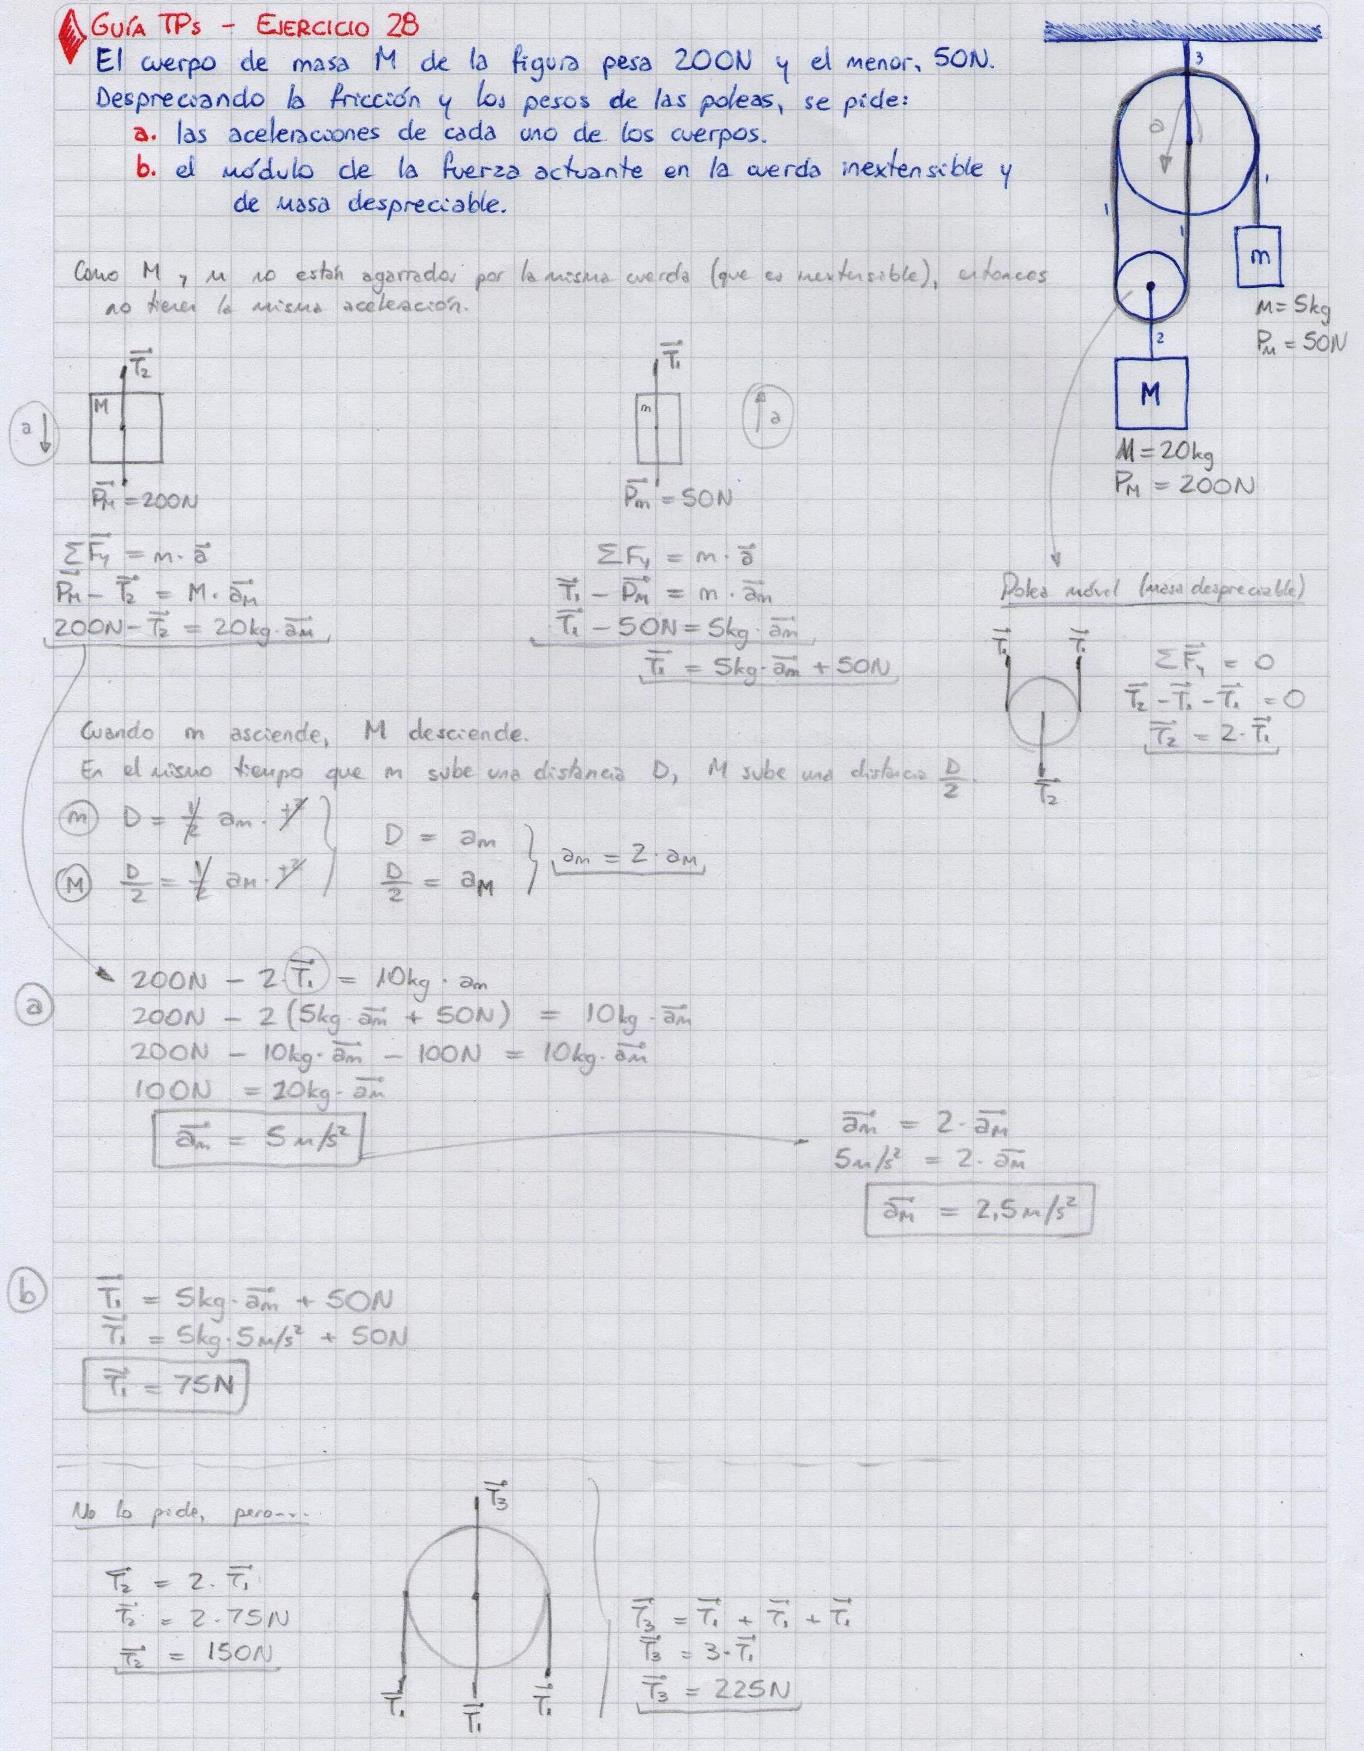 GUÍA TPs - EJERCICIO 28
El cuerpo de masa M de la figura pesa 200N y el menor, 50N.
Despreciando la fricción y los pesos de las poleas, se pide:
a. las aceleraciones de cada uno de los cuerpos.
b. el módulo de la fuerza actuante en la cuerda inextensible y
de masa despreciable.
3
a
1
1
1
m
m = 5kg
Pm = 50N
2
M
M = 20kg
PM = 200N
Como M y m no están agarrados por la misma cuerda (que es inextensible), entonces
no tienen la misma aceleración.
T₂
M
a ↓
PM = 200N
T₁
m
↑ a
Pm = 50N
ΣFy = m · a
PM - T₂ = M · aM
200N - T₂ = 20kg · aM
ΣFy = m · a
T₁ - Pm = m · am
T₁ - 50N = 5kg · am
T₁ = 5kg · am + 50N
Polea móvil (masa despreciable)
T₁ T₁
T₂
ΣFy = 0
T₂ - T₁ - T₁ = 0
T₂ = 2 · T₁
Cuando m asciende, M desciende.
En el mismo tiempo que m sube una distancia D, M sube una distancia D/2.
m D = 1/2 am · t²
M D/2 = 1/2 aM · t²
D = am
D/2 = aM
am = 2 · aM
a
200N - 2 · T₁ = 10kg · am
200N - 2 (5kg · am + 50N) = 10kg · am
200N - 10kg · am - 100N = 10kg · am
100N = 20kg · am
am = 5m/s²
am = 2 · aM
5m/s² = 2 · aM
aM = 2,5m/s²
b
T₁ = 5kg · am + 50N
T₁ = 5kg · 5m/s² + 50N
T₁ = 75N
No lo pide, pero...
T₂ = 2 · T₁
T₂ = 2 · 75N
T₂ = 150N
T₃
T₁ T₁ T₁
T₃ = T₁ + T₁ + T₁
T₃ = 3 · T₁
T₃ = 225N